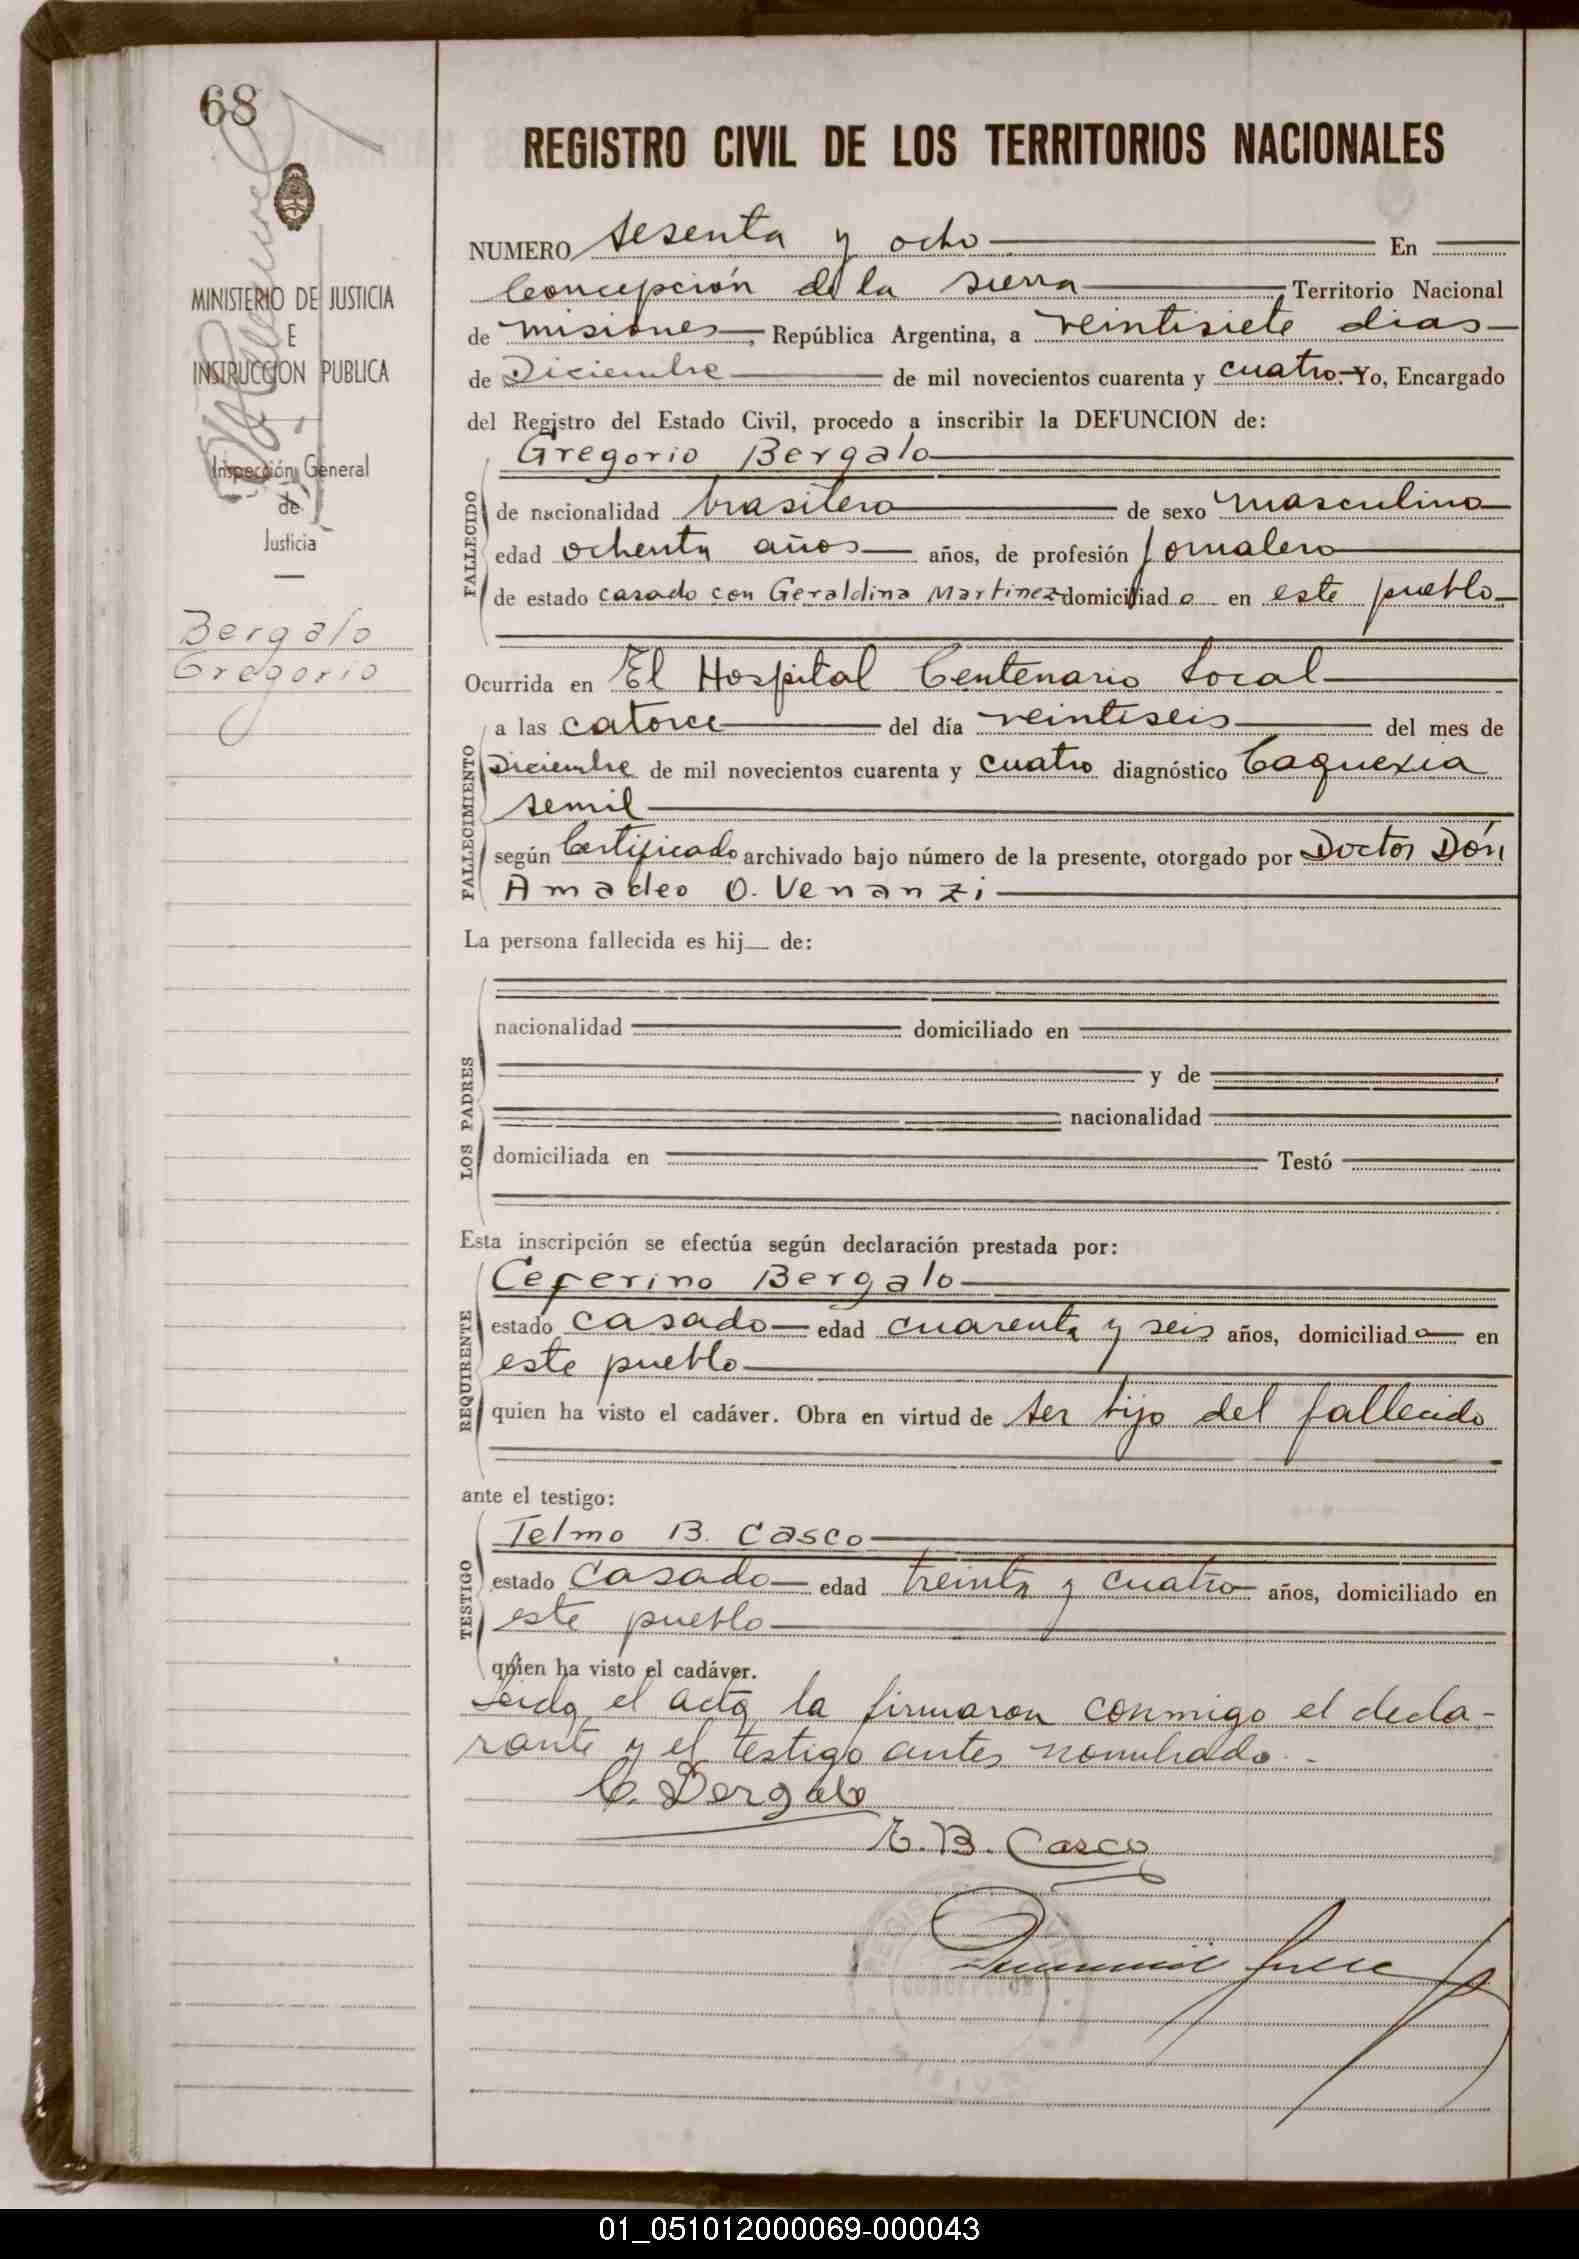 68
MINISTERIO DE JUSTICIA
E
INSTRUCCION PUBLICA
Inspección General
de
Justicia
Bergalo
Gregorio
REGISTRO CIVIL DE LOS TERRITORIOS NACIONALES
NUMERO sesenta y ocho En
Concepción de la sierra Territorio Nacional
de misiones, República Argentina, a veintisiete dias
de Diciembre de mil novecientos cuarenta y cuatro. Yo, Encargado
del Registro del Estado Civil, procedo a inscribir la DEFUNCION de:
Gregorio Bergalo
FALLECIDO
de nacionalidad brasilero de sexo masculino
edad ochenta años años, de profesión Jornalero
de estado casado con Geraldina Martinez domiciliado en este pueblo
Ocurrida en El Hospital Centenario Local
a las catorce del día veintiseis del mes de
FALLECIMIENTO
Diciembre de mil novecientos cuarenta y cuatro diagnóstico Caquexia
semil
según Certificado archivado bajo número de la presente, otorgado por Doctor Dón
Amadeo O. Venanzi
La persona fallecida es hij de:
LOS PADRES
nacionalidad domiciliado en
y de
nacionalidad
domiciliada en Testó
Esta inscripción se efectúa según declaración prestada por:
Ceferino Bergalo
REQUIRENTE
estado casado edad cuarenta y seis años, domiciliado en
este pueblo
quien ha visto el cadáver. Obra en virtud de ser hijo del fallecido
ante el testigo:
Telmo B. Casco
TESTIGO
estado casado edad treinta y cuatro años, domiciliado en
este pueblo
quien ha visto el cadáver.
Leida el acta la firmaron conmigo el decla-
rante y el testigo antes nombrado.-
C. Bergalo
T. B. Casco
01_051012000069-000043